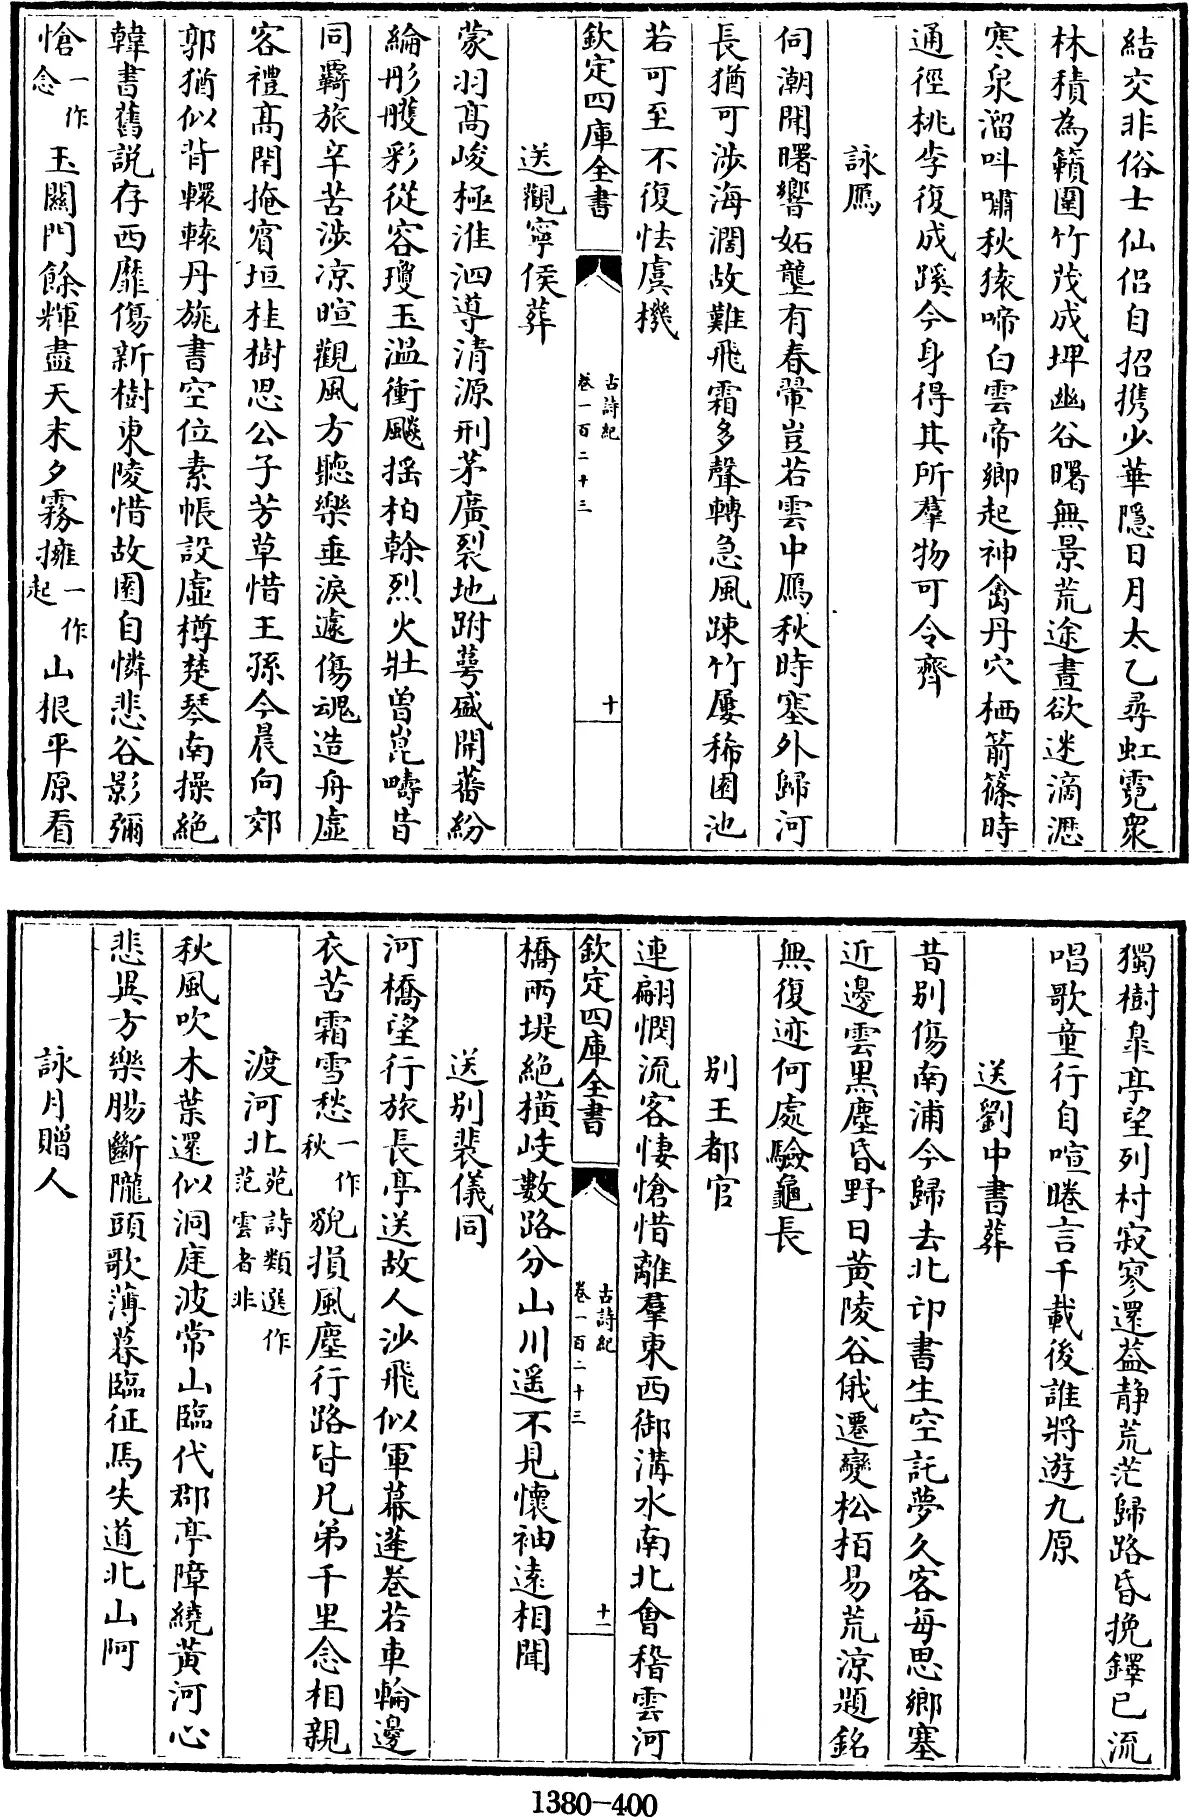 結交非俗士仙侶自招携少華隱日月太乙尋虹霓衆
林積為籟圍竹茂成埤幽谷曙無景荒途晝欲迷滴瀝
寒泉溜叫嘯秋猿啼白雲帝鄉起神禽丹穴栖箭篠時
通徑桃李復成蹊今身得其所羣物可令齊
詠鴈
伺潮聞曙響妬壟有春翬豈若雲中鴈秋時塞外歸河
長猶可涉海濶故難飛霜多聲轉急風疎竹屢稀園池
若可至不復怯虞機
欽定四庫全書
古詩紀
卷一百二十三
十
送觀寧侯葬
蒙羽髙峻極淮泗導清源刑茅廣裂地跗萼盛開蕃紛
綸彤雘彩從容瓊玉溫衝飈揺柏榦烈火壯曽崑疇昔
同羇旅辛苦涉凉暄觀風方聽樂垂淚遽傷魂造舟虛
客禮髙閈掩賓垣桂樹思公子芳草惜王孫今晨向郊
郭猶似背轘轅丹旐書空位素帳設虛樽楚琴南操絶
韓書舊說存西靡傷新樹東陵惜故園自憐悲谷影彌
愴一作念玉關門餘輝盡天末夕霧擁一作起山根平原看
獨樹臯亭望列村寂寥還葢静荒茫歸路昏挽鐸已流
唱歌童行自喧睠言千載後誰將遊九原
送劉中書葬
昔别傷南浦今歸去北邙書生空託夢久客每思鄉塞
近邊雲黒塵昏野日黄陵谷俄遷變松柏易荒涼題銘
無復迹何處驗龜長
别王都官
連翩憫流客悽愴惜離羣東西御溝水南北會稽雲河
欽定四庫全書
古詩紀
卷一百二十三
十一
橋兩堤絶橫岐數路分山川遥不見懷袖遠相聞
送别裴儀同
河橋望行旅長亭送故人沙飛似軍幕蓬卷若車輪邊
衣苦霜雪愁一作秋貌損風塵行路皆凡弟千里念相親
渡河北苑詩類選作范雲者非
秋風吹木葉還似洞庭波常山臨代郡亭障繞黄河心
悲異方樂腸斷隴頭歌薄暮臨征馬失道北山阿
詠月贈人
1380-400